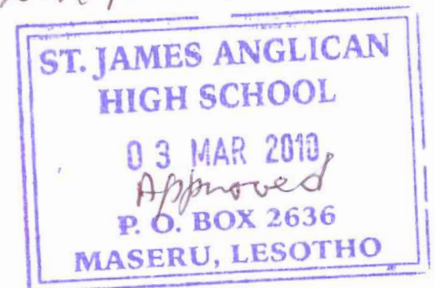 ST. JAMES ANGLICAN
HIGH SCHOOL
03 MAR 2010
Approved
P. O. BOX 2636
MASERU, LESOTHO